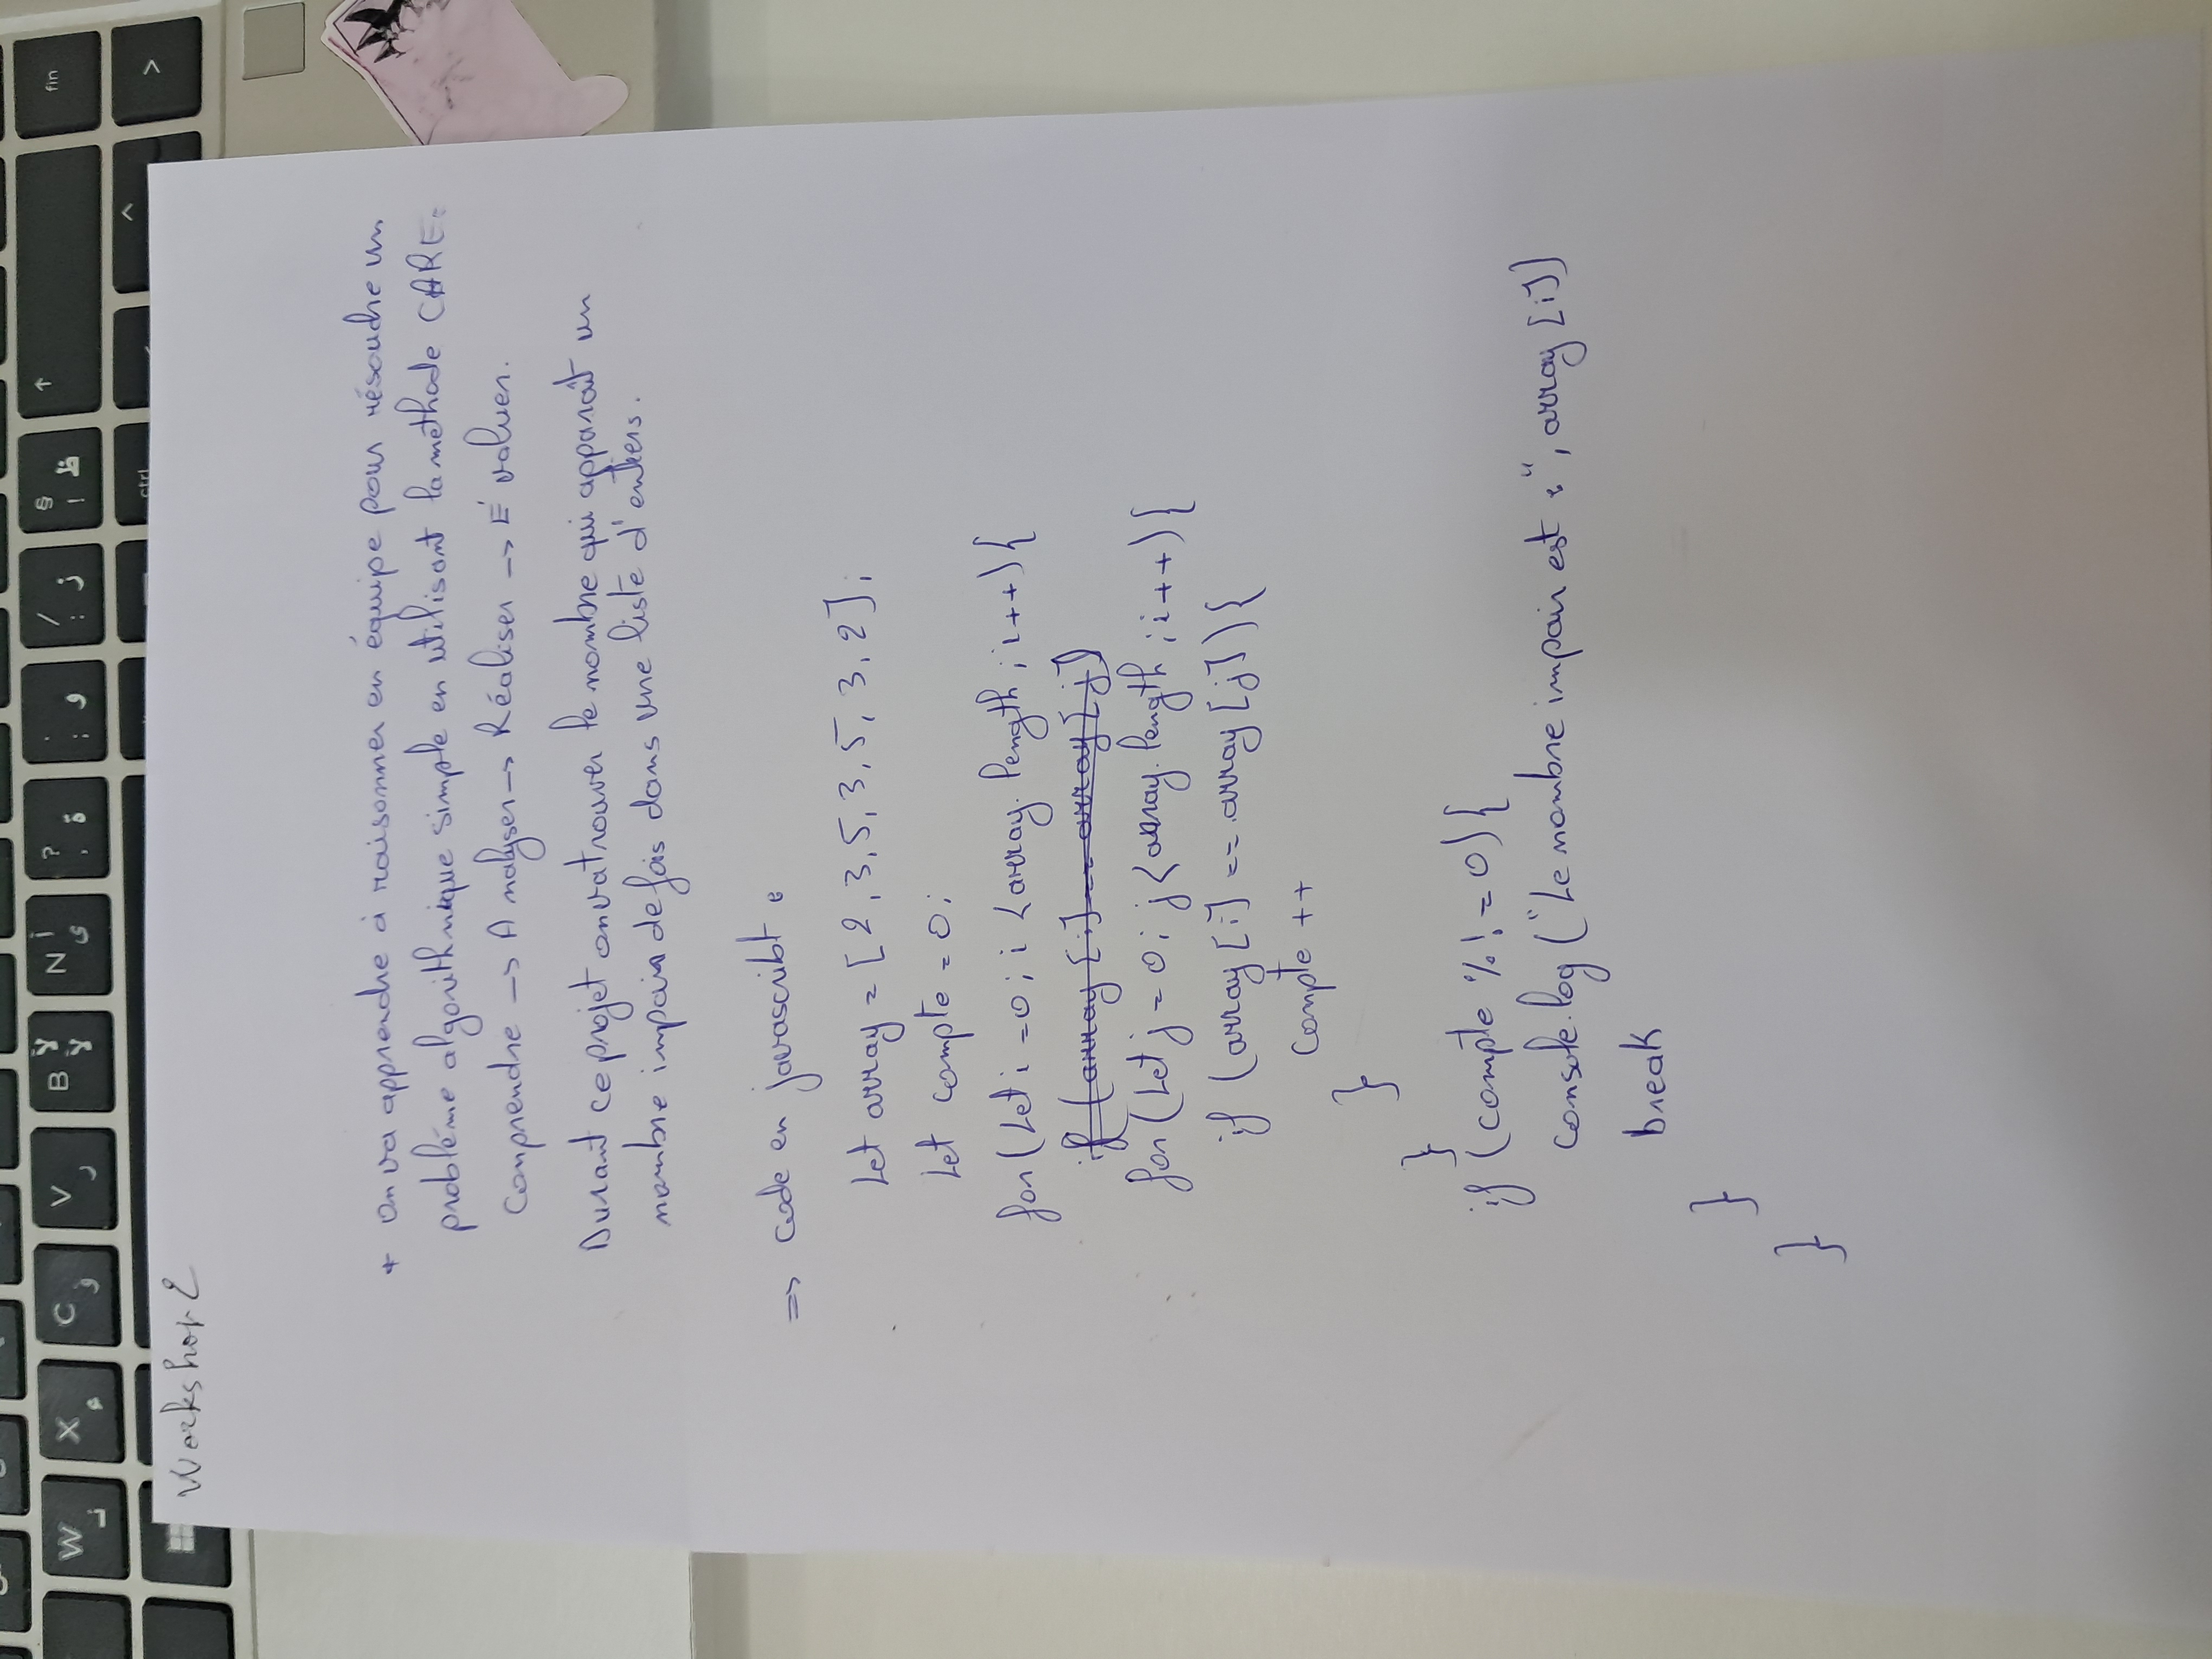 W
X
C
V
B
N
?
,
.
;
/
:
§
!
fin
ctrl
Workshop 2
+ on va apprendre à raisonner en équipe pour résoudre un
problème algorithmique simple en utilisant la méthode CARE:
Comprendre -> Analyser -> Réaliser -> Évaluer.
Durant ce projet on va trouver le nombre qui apparaît un
nombre impair de fois dans une liste d'entiers.
=> code en javascribt :
Let array = [2, 3, 5, 3, 5, 3, 2];
Let compte = 0;
for(Let i = 0; i < array.length; i++){
if (array[i] == array[j])
for(Let j = 0; j < array.length; i++){
if (array[i] == array[j]){
compte ++
}
}
if (compte % != 0){
console.log("Le nombre impair est :", array[i])
break
}
}